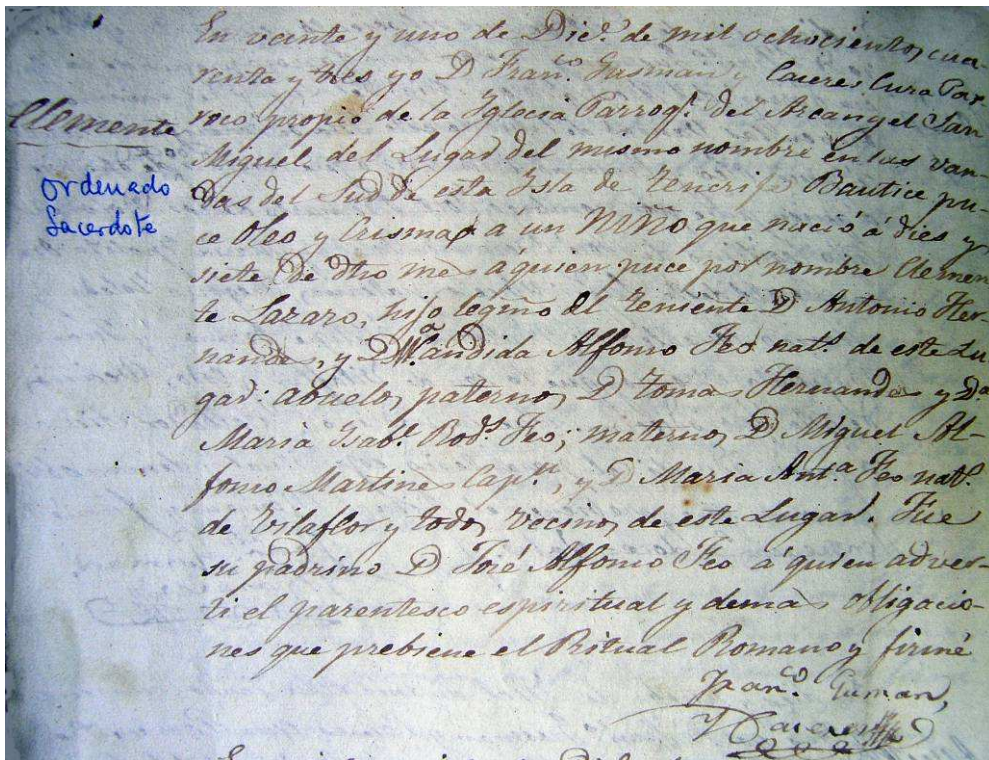 En veinte y uno de Dic.e de mil ochocientos, cua-
renta y tres yo D Fran.co Gusman y Caceres Cura Par
Clemente
roco propio de la Iglecia Parroq.l del Arcangel San
Miguel del Lugar del mismo nombre en las van-
ordenado
Sacerdote
das del Sud de esta Isla de Tenerife Bautice pu-
ce Oleo y Crisma á un NIÑO que nació á dies y
siete de dho mes a quien puce por nombre Clemen
te Lazaro, hijo legmo del Teniente D Antonio Her-
nandes, y D.a Candida Alfonso Feo nat.s de este Lu
gar: abuelos paternos D Tomas Hernandes y D.a
Maria Isab.l Rod.s Feo; maternos D Miguel Al-
fonso Martines Cap.n, y D Maria Ant.a Feo nat.s
de Vilaflor y todos vecinos de este Lugar. Fue
su padrino D José Alfonso Feo á quien adver-
ti el parentesco espiritual y demas obligacio-
nes que prebiene el Ritual Romano y firmé
Fran.co Gusman,
y Caceres